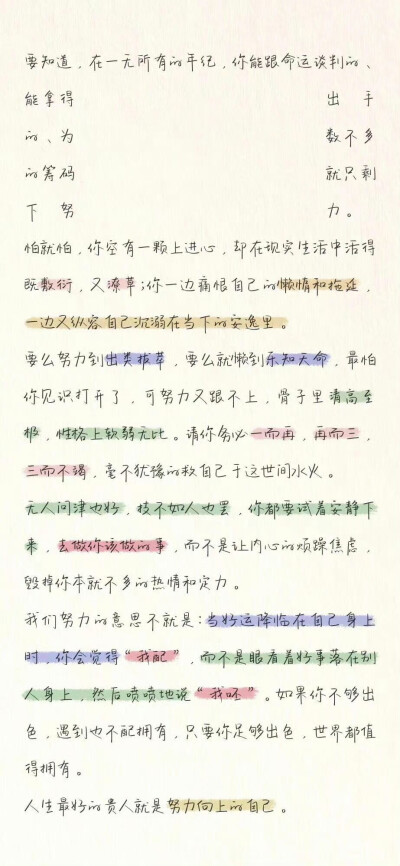 要知道，在一无所有的年纪，你能跟命运谈判的、
能拿得 出手
的、为 数不多
的筹码 就只剩
下努 力。
怕就怕，你空有一颗上进心，却在现实生活中活得
既敷衍，又潦草；你一边痛恨自己的懒惰和拖延，
一边又纵容自己沉溺在当下的安逸里。
要么努力到出类拔萃，要么就懒到乐知天命，最怕
你见识打开了，可努力又跟不上，骨子里清高至
极，性格上软弱无比。请你务必一而再，再而三，
三而不竭，毫不犹豫的救自己于这世间水火。
无人问津也好，技不如人也罢，你都要试着安静下
来，去做你该做的事，而不是让内心的烦躁焦虑，
毁掉你本就不多的热情和定力。
我们努力的意思不就是：当好运降临在自己身上
时，你会觉得“我配”，而不是眼看着好事落在别
人身上，然后喷喷地说“我呸”。如果你不够出
色，遇到也不配拥有，只要你足够出色，世界都值
得拥有。
人生最好的贵人就是努力向上的自己。